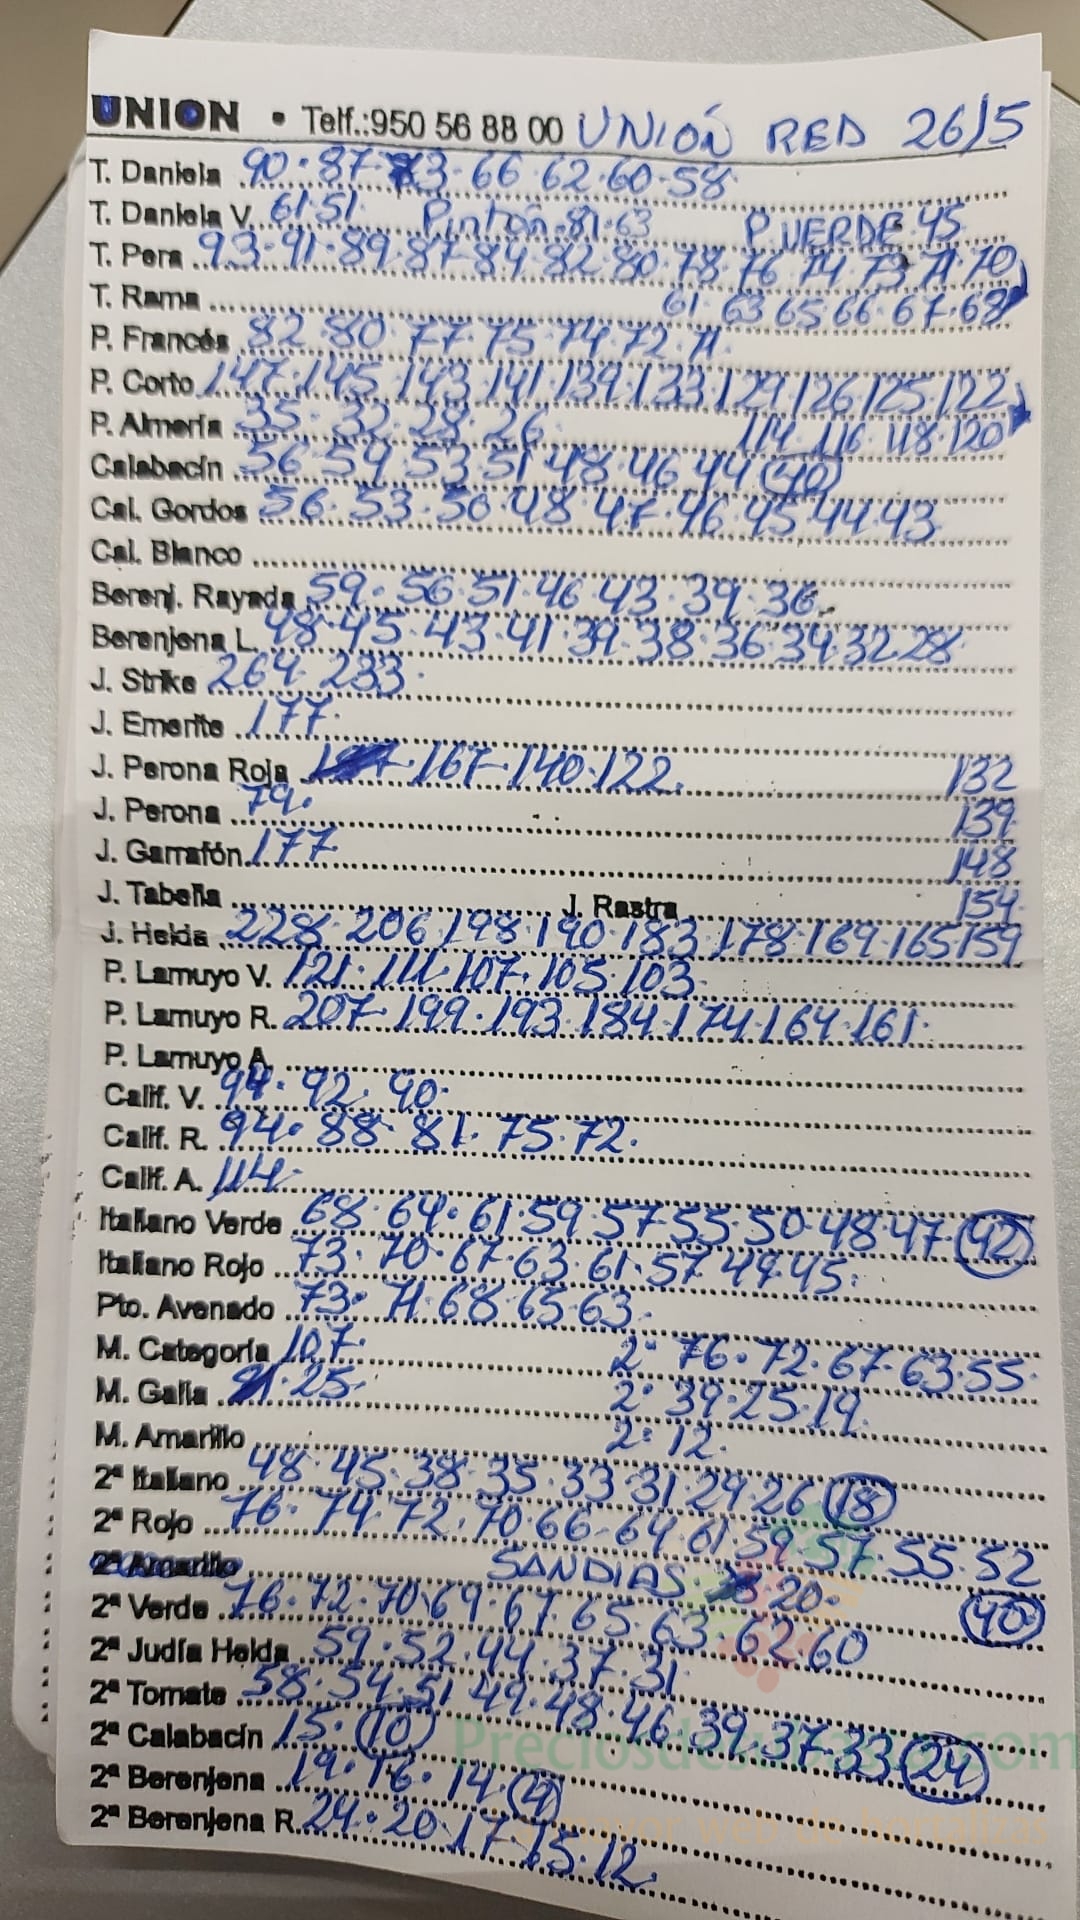 UNION • Telf.:950 56 88 00 UNIÓN RED 26/5
T. Daniela 90·87·73·66·62·60·58
T. Daniela V. 61·51 Pintón·81·63 P.VERDE·45
T. Pera 93·91·89·87·84·82·80·78·76·74·73·71·70
T. Rama 61·63·65·66·67·68
P. Francés 82·80·77·75·74·72·71
P. Corto 147·145·143·141·139·133·129·126·125·122
P. Almería 35·32·28·26 114·116·118·120
Calabacín 56·54·53·51·48·46·44 (40)
Cal. Gordos 56·53·50·48·47·46·45·44·43
Cal. Blanco
Berenj. Rayada 59·56·51·46·43·39·36
Berenjena L. 48·45·43·41·39·38·36·34·32·28
J. Strike 264·233
J. Emerite 177
J. Perona Roja 167·140·122 132
J. Perona 79 139
J. Garrafón 177 148
J. Tabeña J. Rastra 154
J. Helda 228·206·198·190·183·178·169·165·159
P. Lamuyo V. 121·111·107·105·103
P. Lamuyo R. 207·199·193·184·174·164·161
P. Lamuyo A.
Calif. V. 94·92·90
Calif. R. 94·88·81·75·72
Calif. A. 114
Italiano Verde 68·64·61·59·57·55·50·48·47 (42)
Italiano Rojo 73·70·67·63·61·57·49·45
Pto. Avenado 73·71·68·65·63
M. Categoría 107 2ª 76·72·67·63·55
M. Galia 25 2ª 39·25·19
M. Amarillo 2ª 12
2ª Italiano 48·45·38·35·33·31·29·26 (18)
2ª Rojo 76·74·72·70·66·64·61·59·57·55·52
2ª Amarillo SANDIAS 20
2ª Verde 76·72·70·69·67·65·63·62·60 (40)
2ª Judía Helda 59·52·44·37·31
2ª Tomate 58·54·51·49·48·46·39·37·33 (24)
2ª Calabacín 15·(10)
2ª Berenjena 19·16·14 (4)
2ª Berenjena R. 24·20·17·15·12